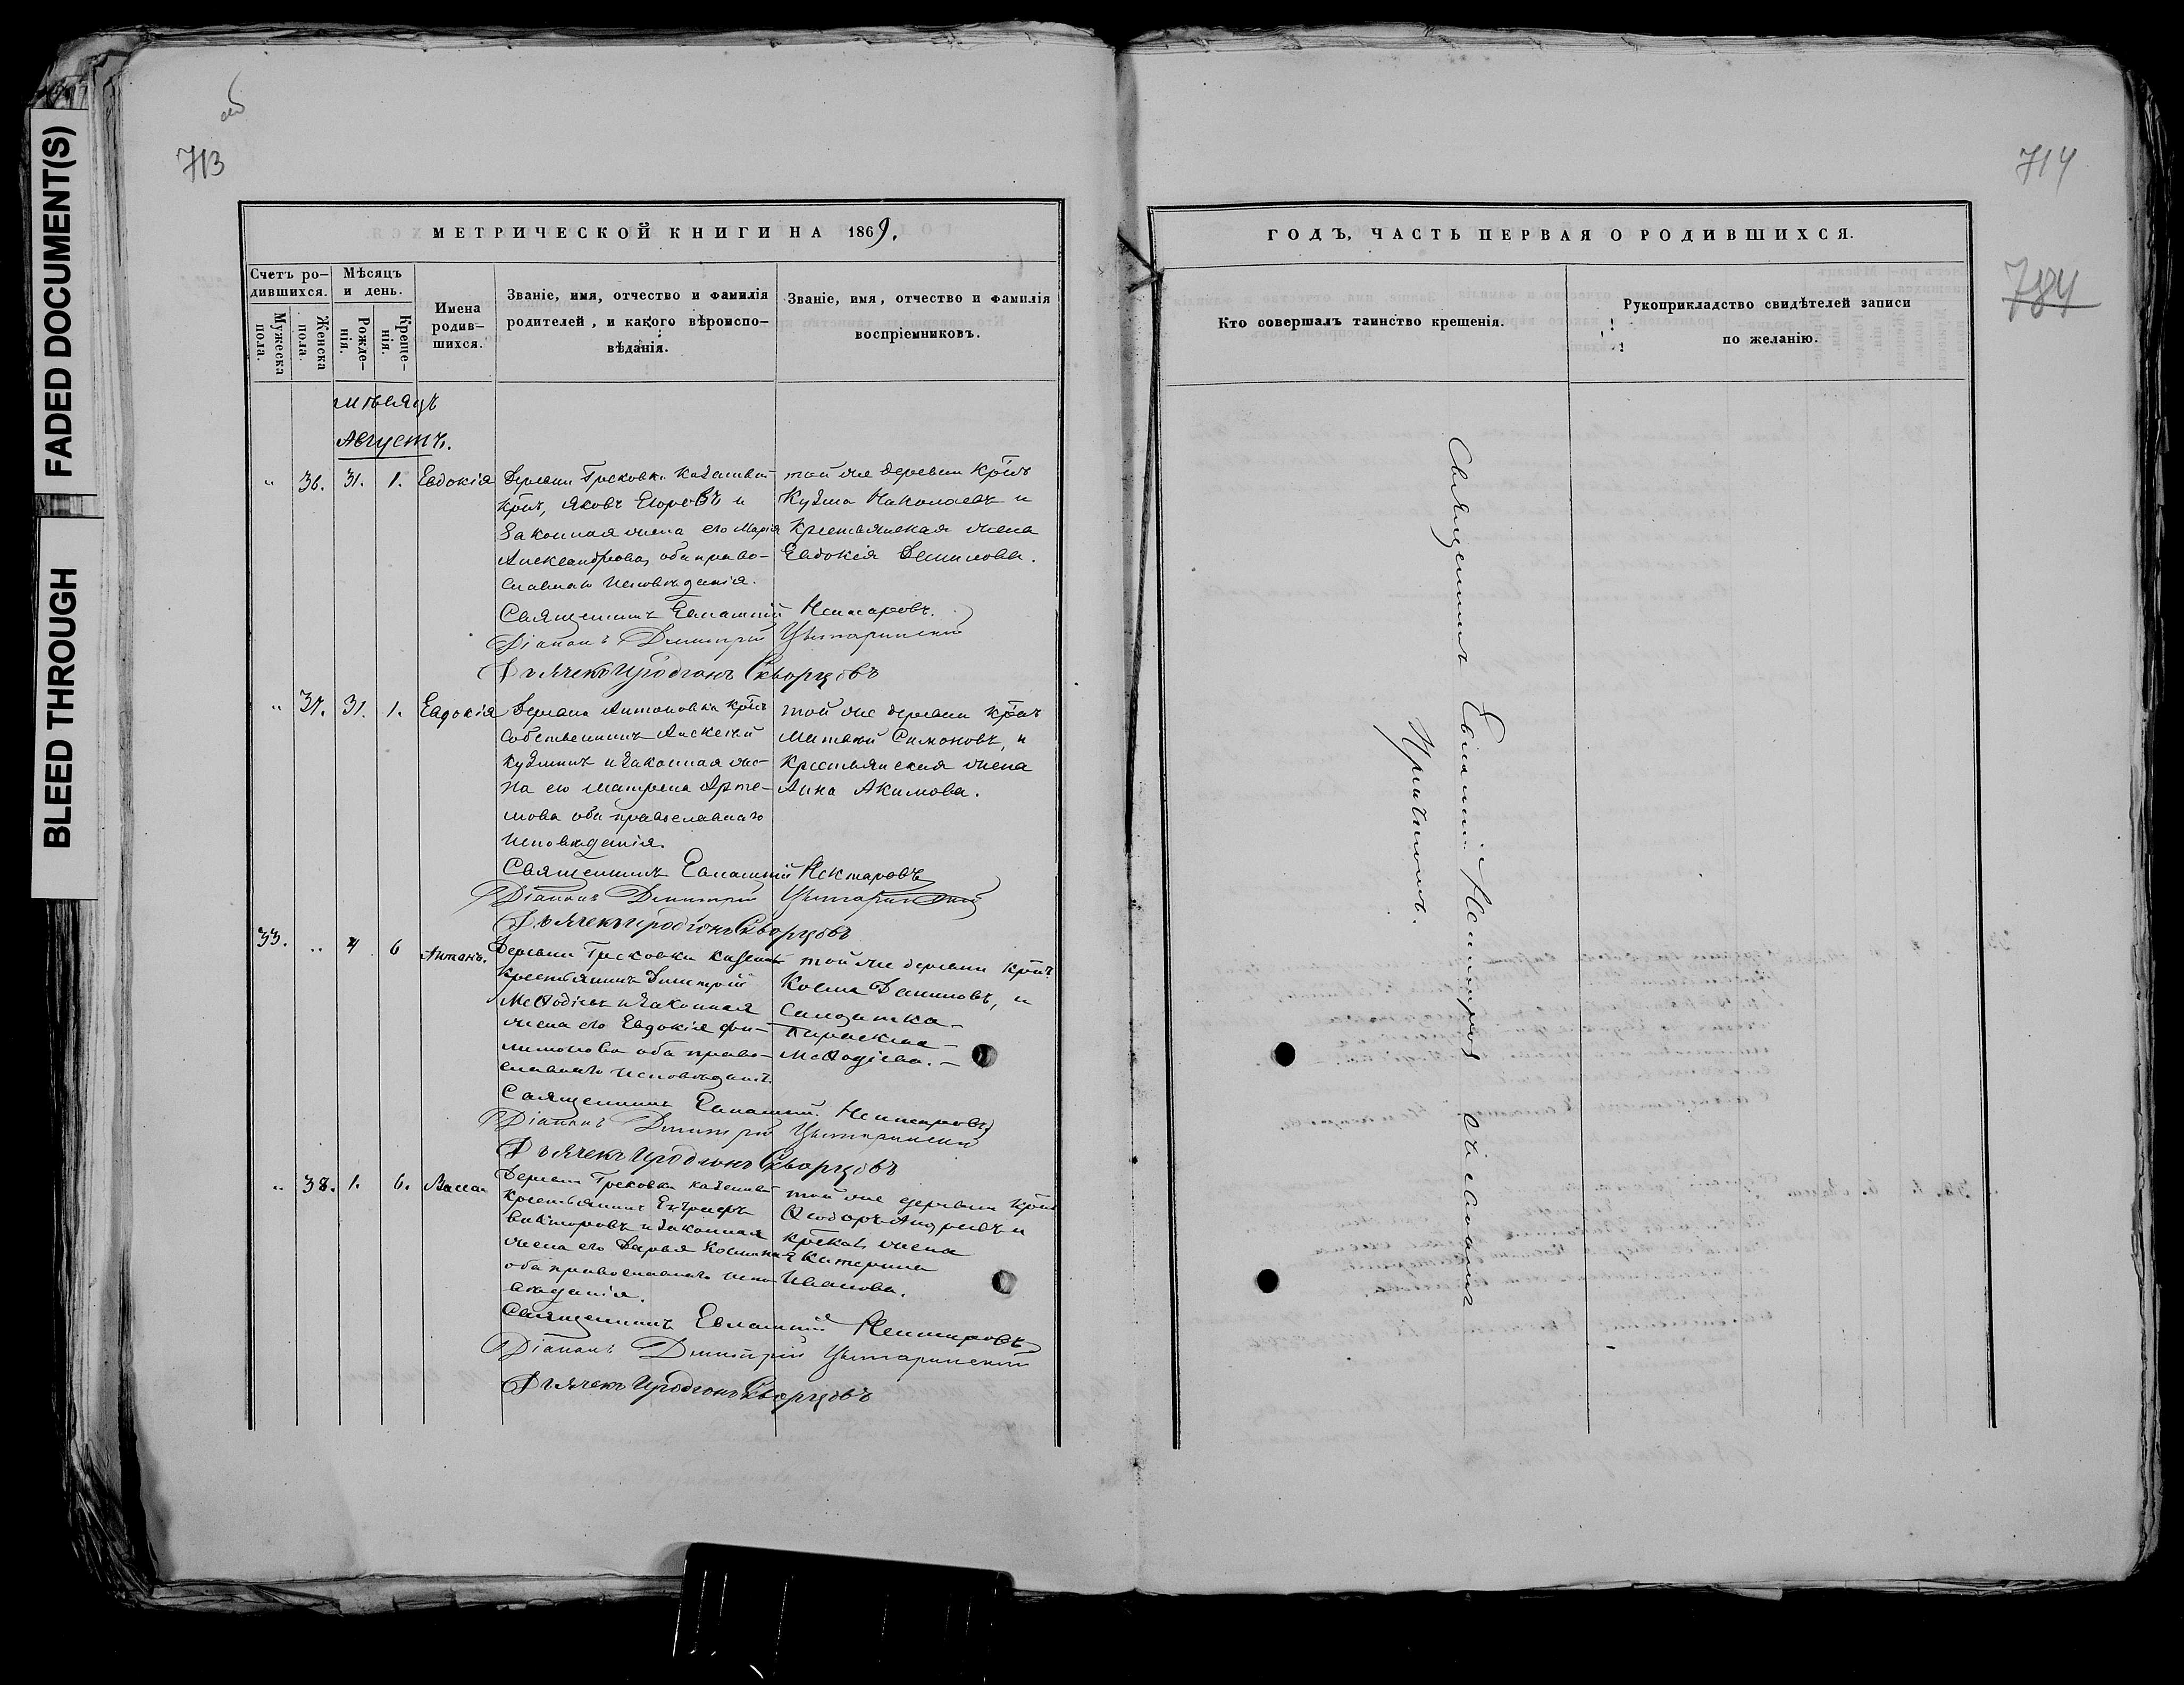 FADED DOCUMENT(S)
BLEED THROUGH
об
713
МЕТРИЧЕСКОЙ КНИГИ НА 1869.
Счетъ родившихся.
Мужеска пола.
Женска пола.
Мѣсяцъ и день.
Рожденія.
Крещенія.
Имена родившихся.
Званіе, имя, отчество и фамилія
родителей, и какого вѣроиспо-
вѣданія.
Званіе, имя, отчество и фамилія
воспріемниковъ.
мѣсяцъ
Августъ.
" 36. 31. 1. Евдокія
Деревни Грековки казенный
крнъ, Яковъ Егоровъ и
законная жена его Марія
Александрова, оба право-
славнаго исповѣданія.
той же деревни крнъ
Кузма Николаевъ и
Крестьянская жена
Евдокія Данилова.
Священникъ Евлампій Нектаровъ.
Діаконъ Димитрій Цытаринскій
Дьячекъ Иродіонъ Скворцовъ
" 37. 31. 1. Евдокія
Деревни Антоновки крнъ
собственникъ Алексѣй
Кузминъ и законная же-
на его Матрена Арте-
мова оба православнаго
исповѣданія.
той же деревни крнъ
Матвей Симоновъ, и
Крестьянская жена
Анна Акимова.
Священникъ Евлампій Нектаровъ
Діаконъ Димитрій Цытаринскій
Дьячекъ Иродіонъ Скворцовъ
33. " 4 6 Антонъ.
Деревни Грековки казенный
крестьянинъ Димитрій
Меѳодіевъ и законная
жена его Евдокія Фи-
лимонова оба право-
славнаго исповѣданія.
той же деревни крнъ
Косма Даниловъ, и
Солдатка
Параскева
Меѳодіева.
Священникъ Евлампій Нектаровъ
Діаконъ Димитрій Цытаринскій
Дьячекъ Иродіонъ Скворцовъ
" 38. 1. 6. Васса
Деревни Грековки казенный
крестьянинъ
Викторовъ и законная
жена его Дарья Космина
оба православнаго испо-
вѣданія.
той же деревни крнъ
Ѳеодоръ Андреевъ и
крская жена
Катерина
Иванова.
Священникъ Евлампій Нектаровъ
Діаконъ Димитрій Цытаринскій
Дьячекъ Иродіонъ Скворцовъ
714
784
ГОДЪ, ЧАСТЬ ПЕРВАЯ О РОДИВШИХСЯ.
Кто совершалъ таинство крещенія.
Рукоприкладство свидѣтелей записи
по желанію.
Священникъ Евлампій Нектаровъ съ Діакономъ
Причтомъ.